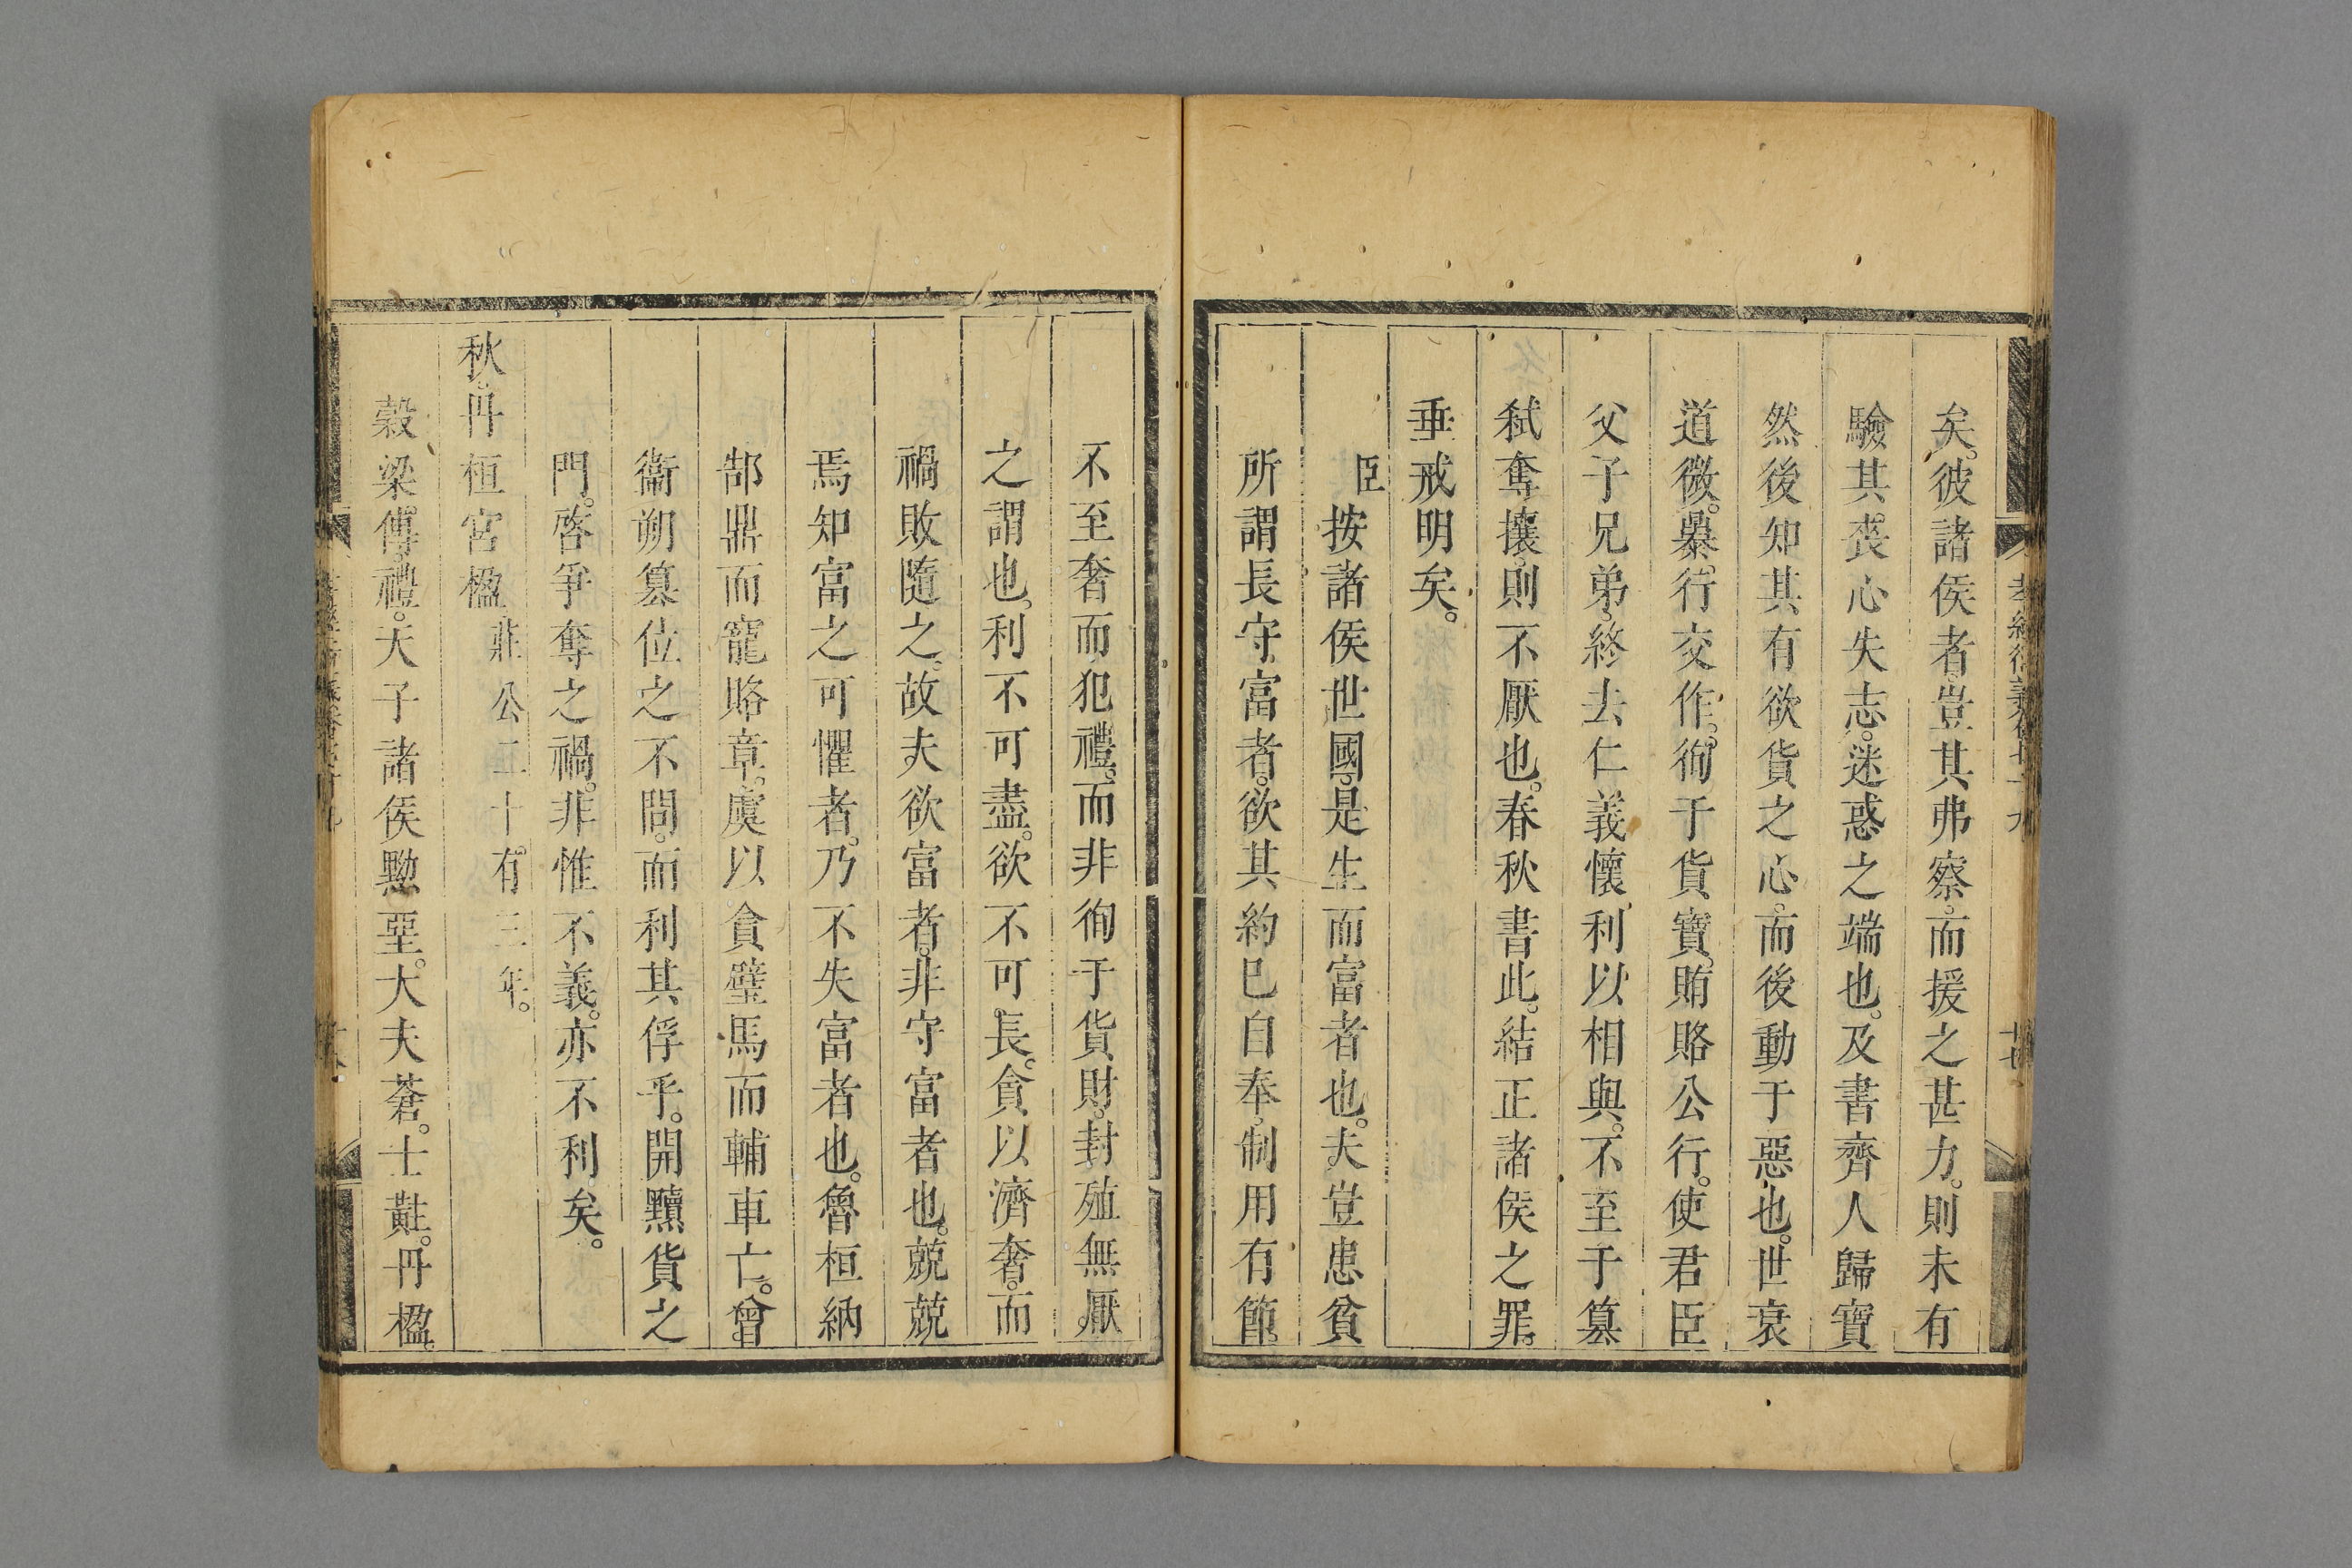 矣。彼諸侯者。豈其弗察。而援之甚力。則未有
驗其喪心失志。迷惑之端也。及書齊人歸寶
然後知其有欲貨之心。而後動于惡也。世衰
道微。暴行交作。徇于貨寶。賄賂公行。使君臣
父子兄弟。終去仁義懷利以相與。不至于篡
弒奪攘。則不厭也。春秋書此。結正諸侯之罪。
垂戒明矣。
臣按諸侯世國。是生而富者也。夫豈患貧
所謂長守富者。欲其約已自奉。制用有節。
不至奢而犯禮。而非徇于貨財。封殖無厭
之謂也。利不可盡。欲不可長。貪以濟奢。而
禍敗隨之。故夫欲富者。非守富者也。兢兢
焉知富之可懼者。乃不失富者也。魯桓納
郜鼎而寵賂章。虞以貪璧馬而輔車亡。曾
衞朔篡位之不問。而利其俘乎。開黷貨之
門。啓爭奪之禍。非惟不義。亦不利矣。
秋。丹桓宮楹莊公二十有三年。
穀梁傳。禮。天子諸侯黝堊。大夫蒼。士黈。丹楹。